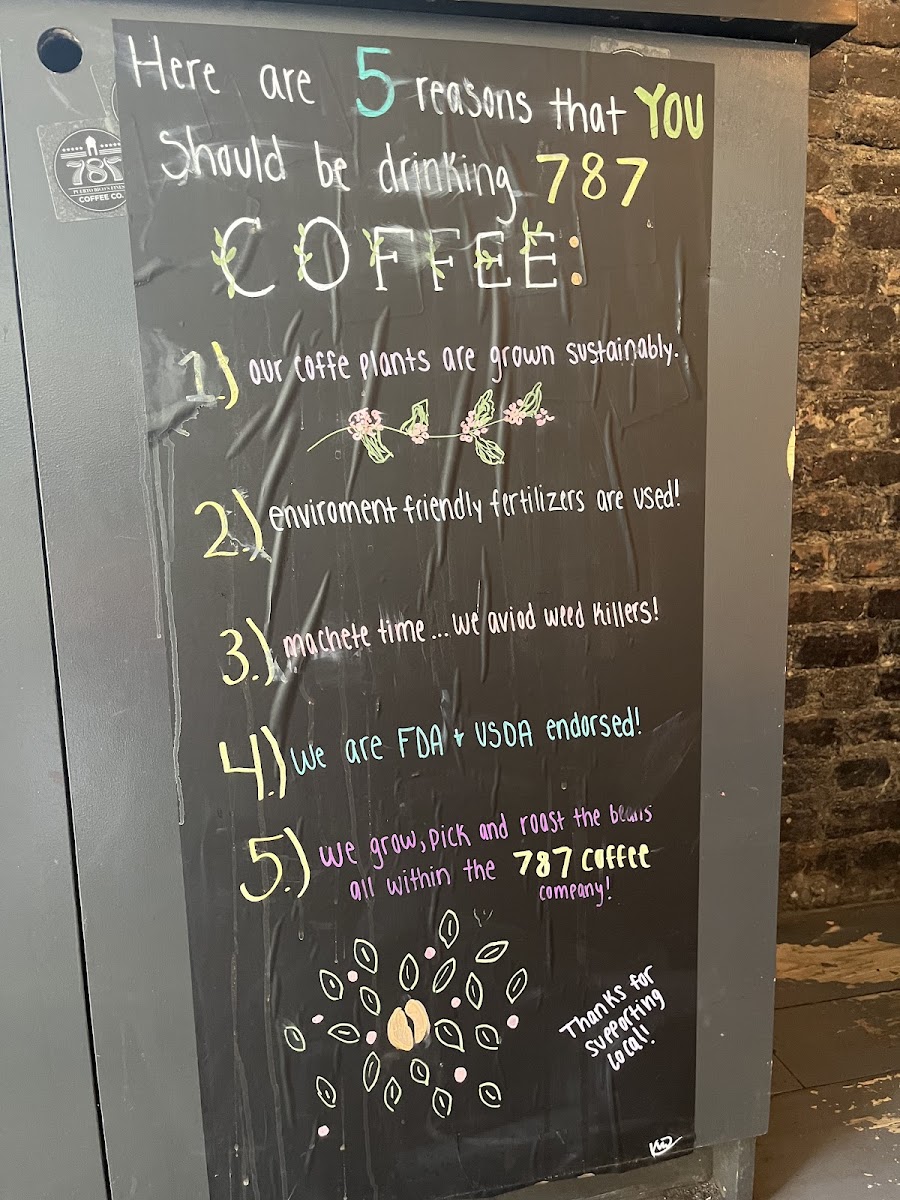 Here are 5 reasons that YOU
Should be drinking 787
COFFEE:
1.) our coffe plants are grown sustainably.
2.) enviroment friendly fertilizers are used!
3.) machete time... we aviod weed killers!
4.) We are FDA + USDA endorsed!
5.) we grow, pick and roast the beans
all within the 787 coffee
company!
Thanks for
supporting
local!
787
PUERTO RICO'S FINEST
COFFEE CO.